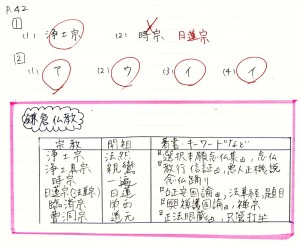 P.42
1
(1) 浄土宗 (2) 時宗 日蓮宗
2
(1) ア (2) ウ (3) イ (4) イ
鎌倉仏教
宗教 開祖 著書・キーワードなど
浄土宗 法然 『選択本願念仏集』, 念仏
浄土真宗 親鸞 『教行信証』, 悪人正機説
時宗 一遍 念仏踊り
日蓮宗(法華宗) 日蓮 『立正安国論』, 法華経, 題目
臨済宗 栄西 『興禅護国論』, 禅宗
曹洞宗 道元 『正法眼蔵』, 只管打坐